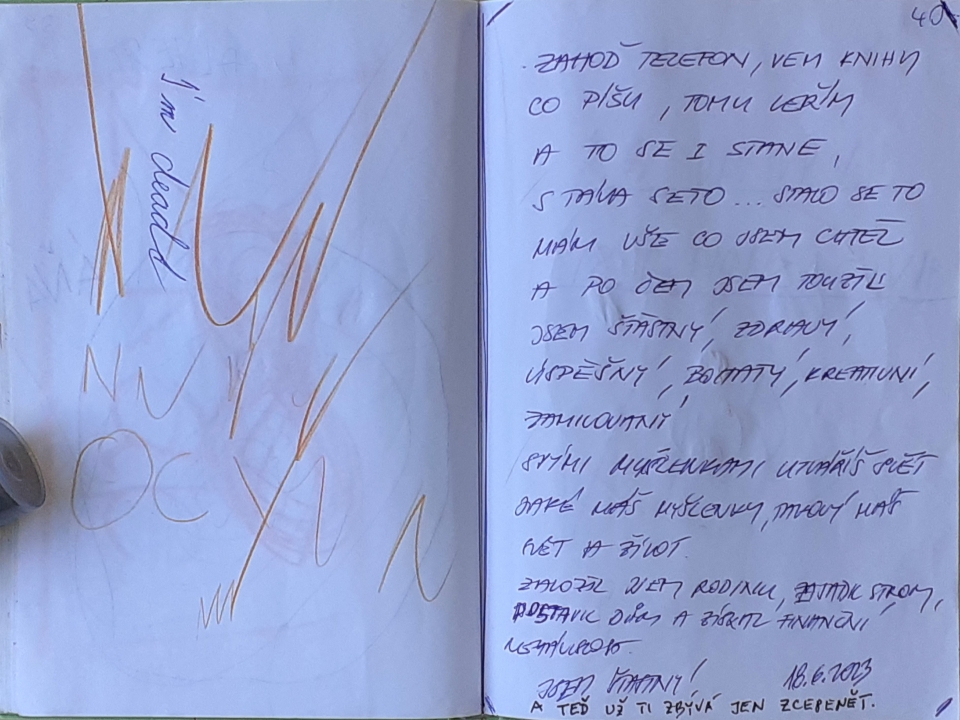 I'm deadd
N N
O C Y N
40
ZAHOĎ TELEFON, VEM KNIHY
CO PÍŠU, TOMU VEŘÍM
A TO SE I STANE,
STÁVÁ SETO... STALO SE TO
MÁM VŠE CO JSEM CHTĚL
A PO ČEM JSEM TOUŽIL
JSEM ŠŤASTNÝ, ZDRAVÝ,
ÚSPĚŠNÝ, BOHATÝ, KREATIVNÍ,
ZAMILOVANÝ
SVÝMI MYŠLENKAMI UTVÁŘÍŠ SVĚT
JAKÉ MÁŠ MYŠLENKY, TAKOVÝ MÁŠ
SVĚT A ŽIVOT.
ZALOŽIL JSEM RODINU, ZASADIL STROM,
POSTAVIL DŮM A ZÍSKAL FINANČNÍ
NEZÁVISLOST.
JSEM ŠŤASTNÝ! 18.6.2023
A TEĎ UŽ TI ZBÝVÁ JEN ZCEPENĚT.